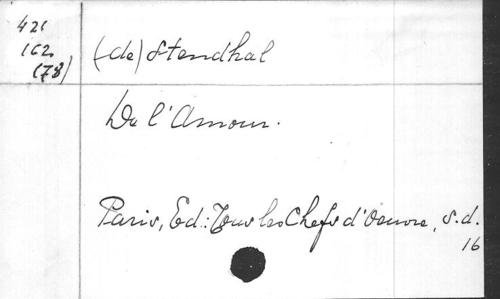 421
162
(78)
(de) Stendhal
De l'Amour.
Paris, Ed.: Tous les Chefs d'Oeuvre, s.d.
16